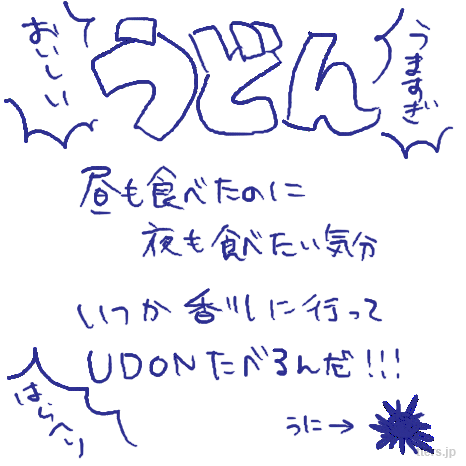 おいしい
うどん
うますぎ
昼も食べたのに
夜も食べたい気分
いつか香川に行って
UDONたべるんだ!!!
はらへり
うに→